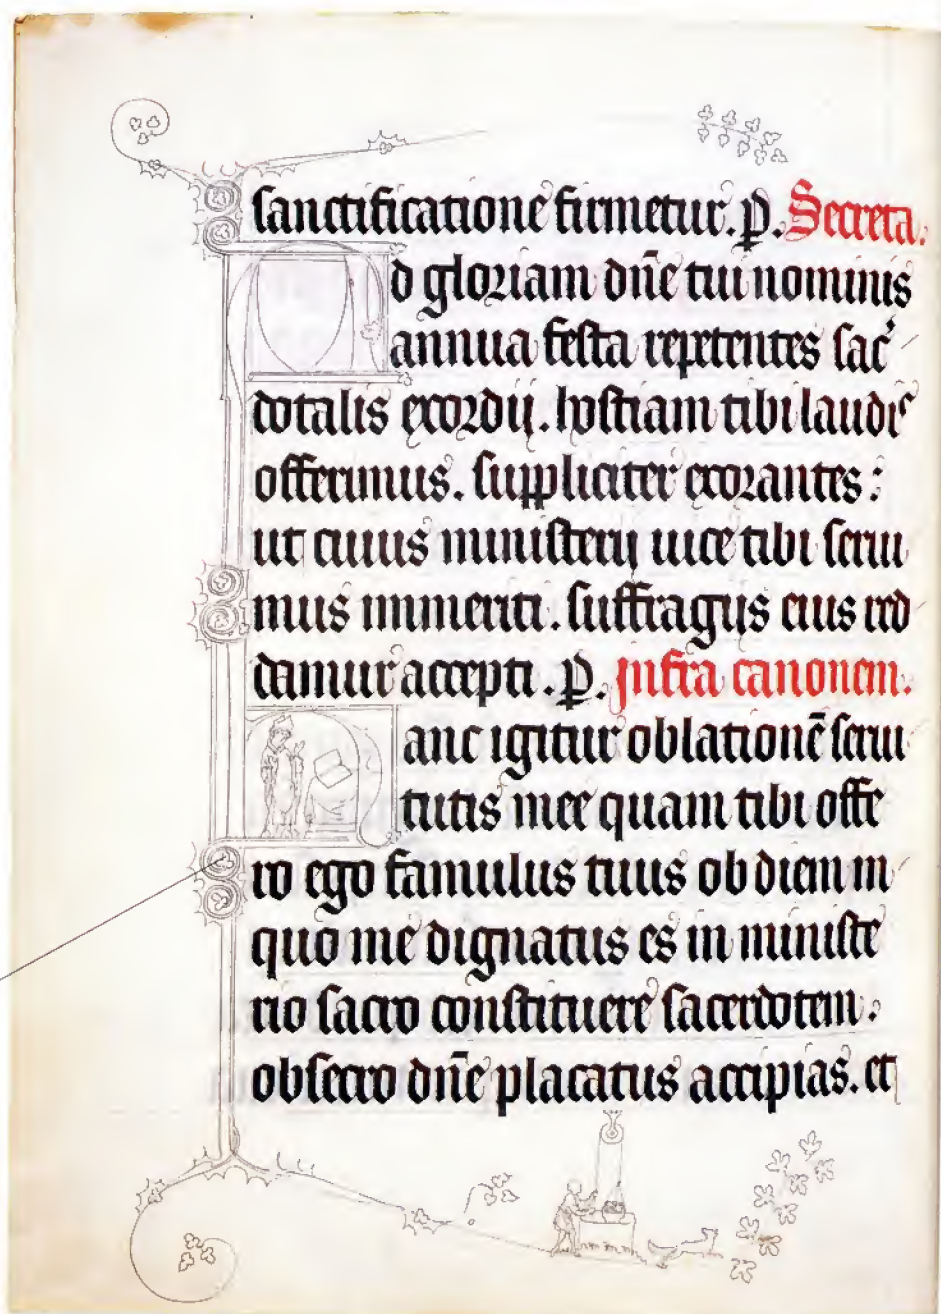 sanctificatione firmetur. p. Secreta.
d gloriam dñe tui nominis
annua festa repetentes sac̉
dotalis exordij. hostiam tibi laudis
offerimus. suppliciter exorantes :
ut cuius ministerij uice tibi serui
mus immeriti. suffragijs eius red
damur accepti. p. Infra canonem.
anc igitur oblationē serui
tutis mee quam tibi offe
ro ego famulus tuus ob diem in
quo me dignatus es in ministe
rio sacro constituere sacerdotem.
obsecro dñe placatus accipias. et